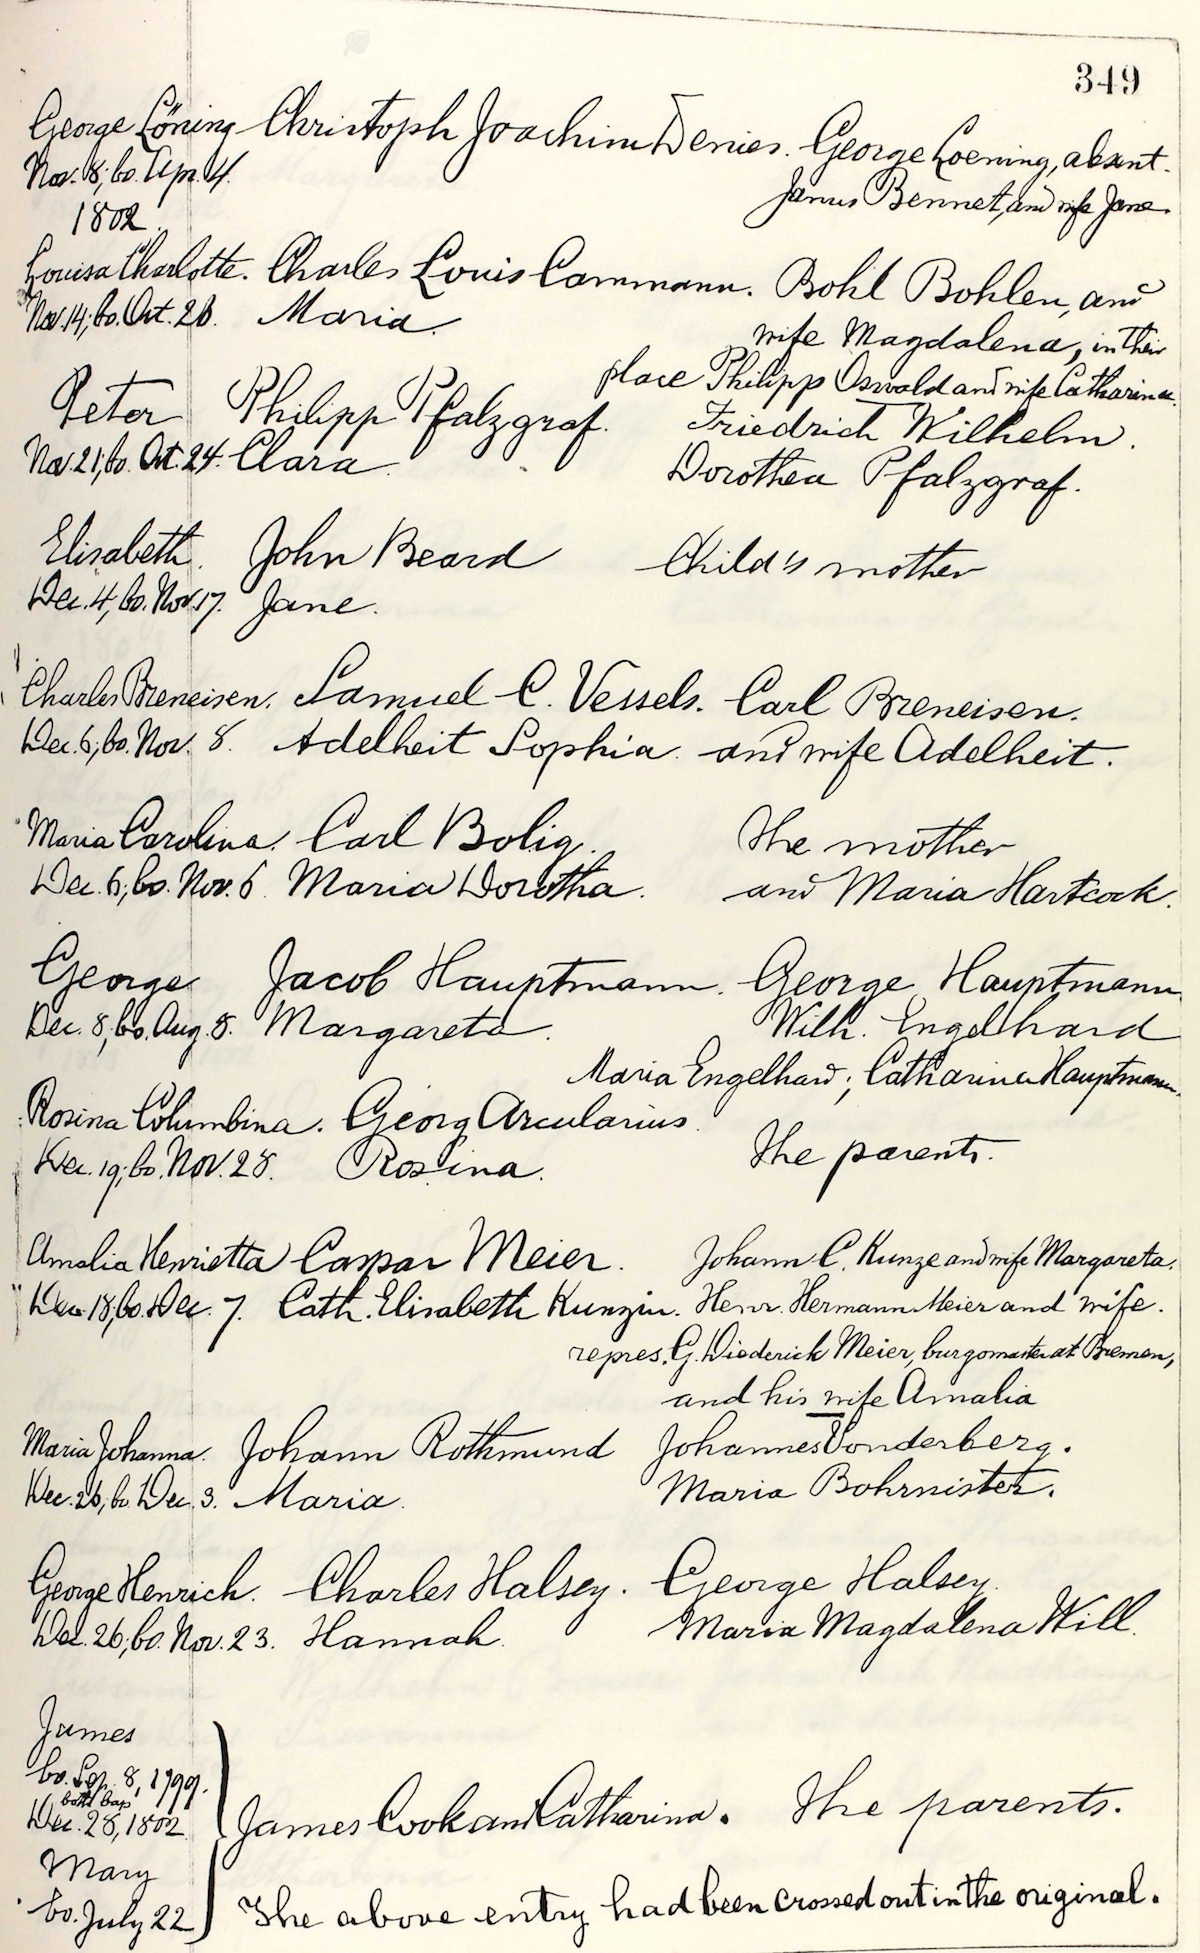 349
George Löning Christoph Joachim Denies. George Loening, absent.
Nov. 8; bo. Apr. 4. James Bennet, and wife Jane.
1802.
Louisa Charlotte. Charles Louis Cammann. Bohl Bohlen, and
Nov. 14; bo. Oct. 26. Maria. wife Magdalena, in their
place Philipp Oswald and wife Catharina.
Peter Philipp Pfalzgraf. Friedrich Wilhelm.
Nov. 21, bo. Oct. 24. Clara. Dorothea Pfalzgraf.
Elisabeth. John Beard Child's mother
Dec. 4, bo. Nov. 17. Jane.
Charles Breneisen. Samuel C. Vessels. Carl Breneisen.
Dec. 6, bo. Nov. 8. Adelheit Sophia. and wife Adelheit.
Maria Carolina. Carl Bolig. The mother
Dec. 6, bo. Nov. 6 Maria Dorotha. and Maria Hartcock.
George Jacob Hauptmann. George Hauptmann
Dec. 8, bo. Aug. 8. Margareta. Wilh. Engelhard
Maria Engelhard; Catharina Hauptmann.
Rosina Columbina. Georg Arcularius.
Dec. 19, bo. Nov. 28. Rosina. The parents.
Amalia Henrietta Caspar Meier. Johann C. Kunze and wife Margareta.
Dec. 18, bo. Dec. 7. Cath. Elisabeth Kunzin. Henr. Hermann Meier and wife.
repres. G. Diederick Meier, burgomaster at Bremen,
and his wife Amalia
Maria Johanna. Johann Rothmund Johannes Vonderberg.
Dec. 26, bo. Dec. 3. Maria. Maria Bohrnister.
George Henrich. Charles Halsey. George Halsey.
Dec. 26, bo. Nov. 23. Hannah. Maria Magdalena Will.
James
bo. Sep. 8, 1799.
both bap
Dec. 28, 1802 James Cook and Catharina. The parents.
Mary
bo. July 22 The above entry had been crossed out in the original.